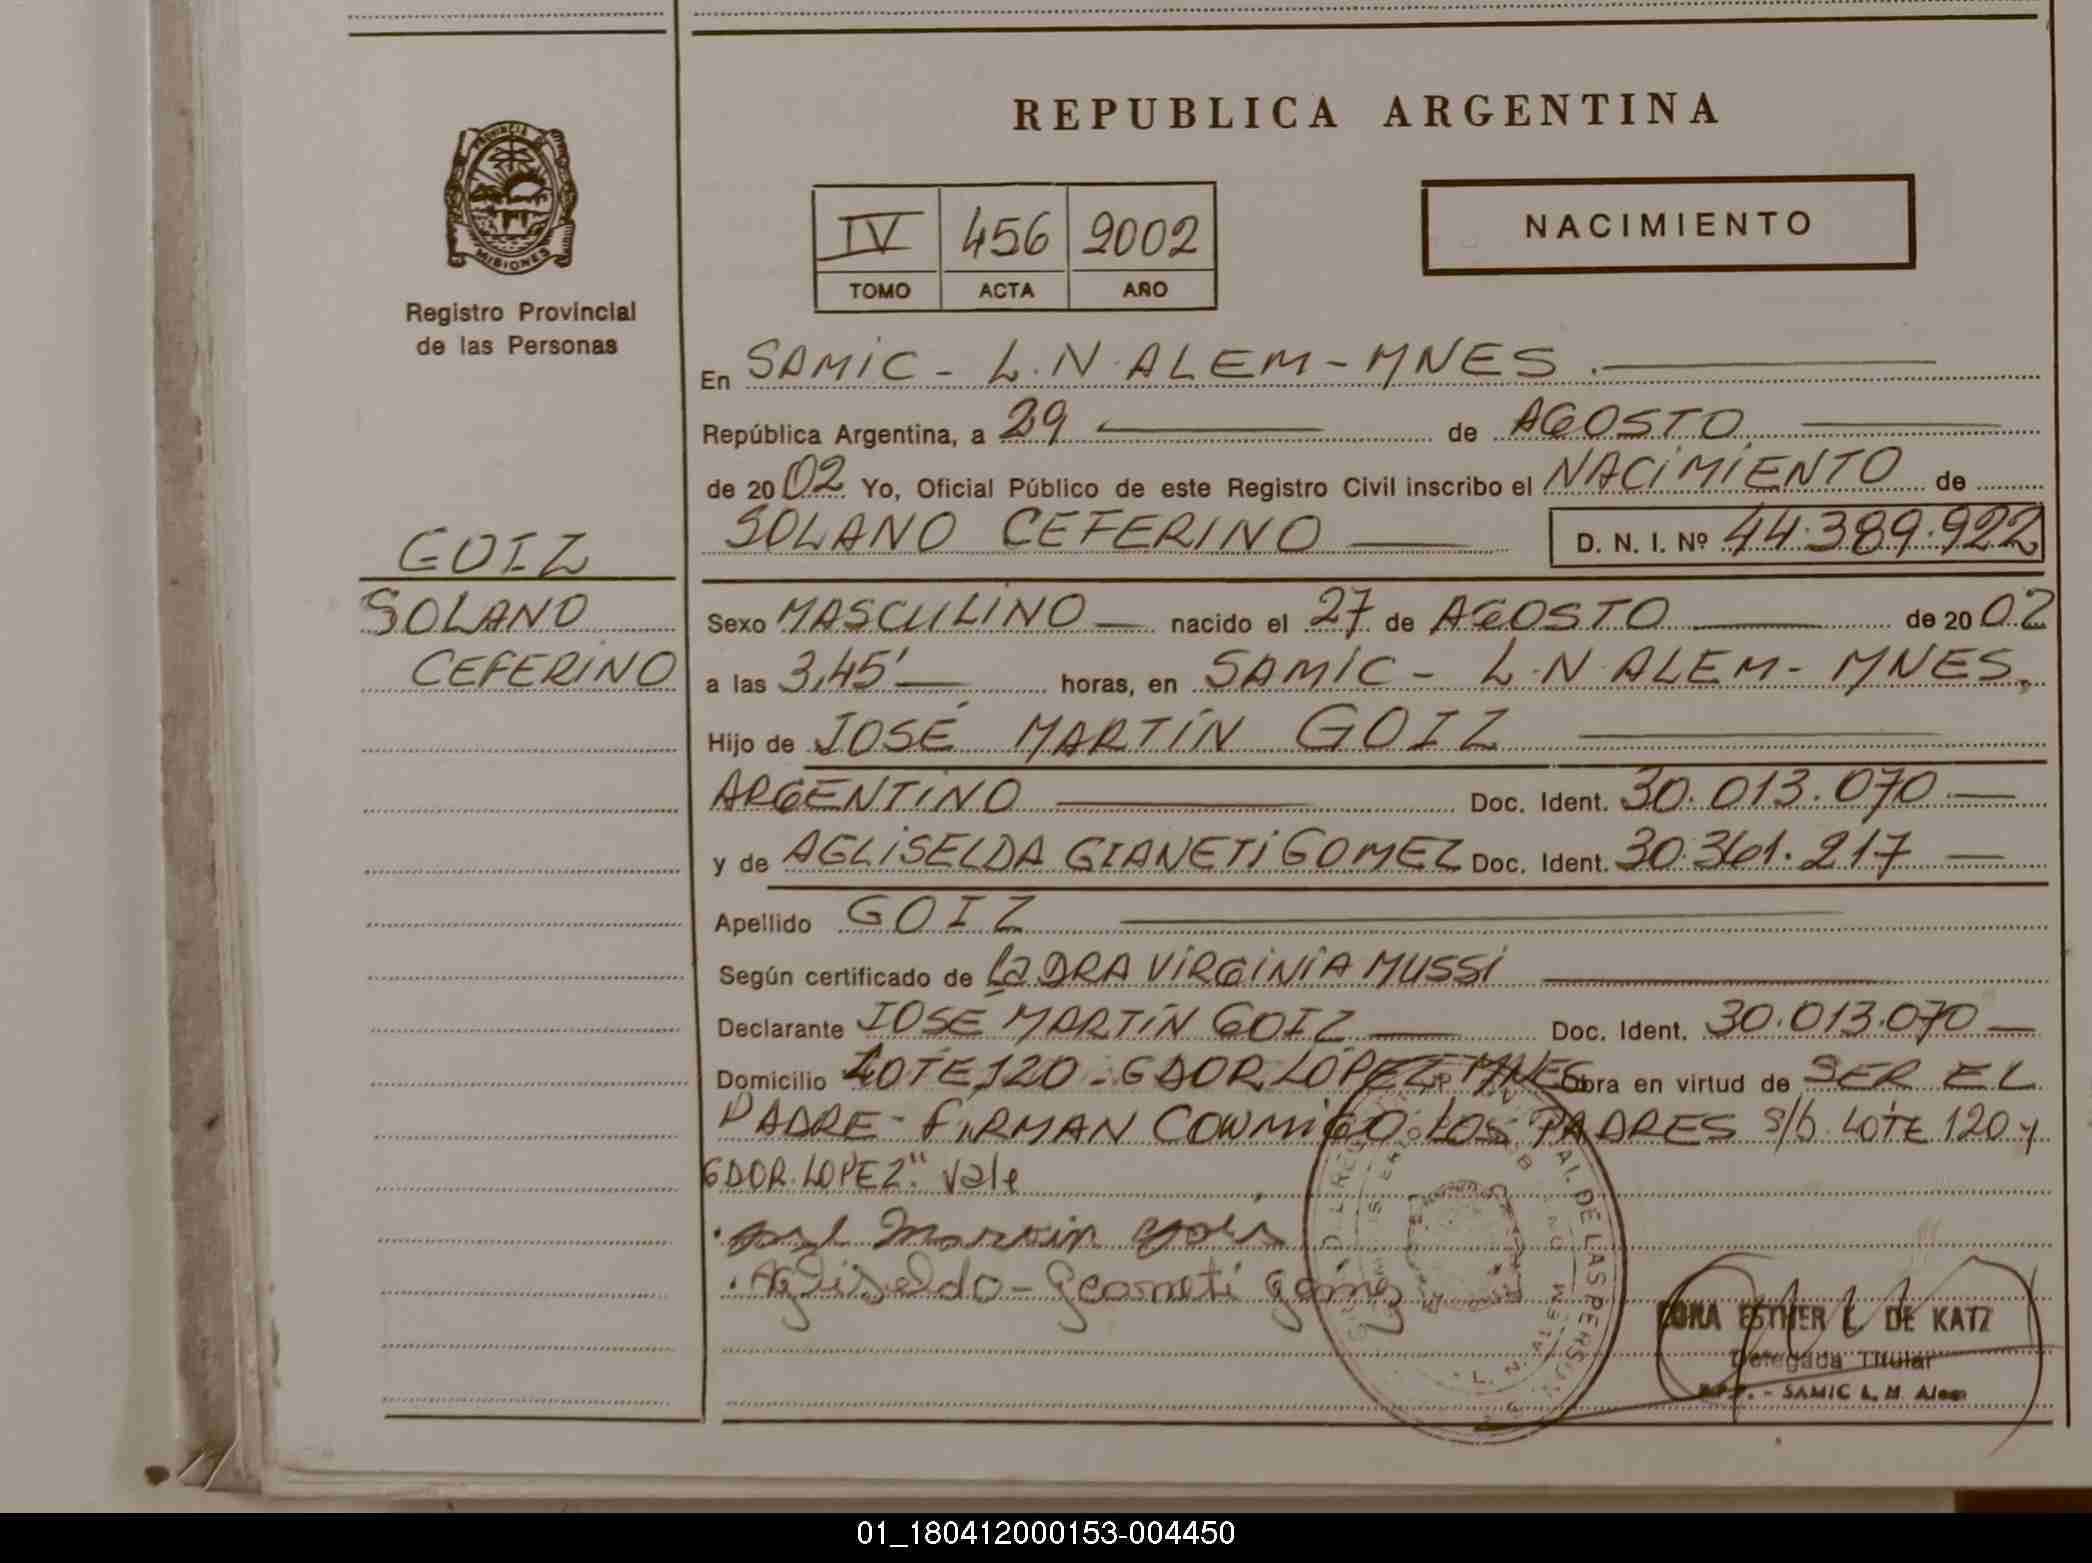 REPUBLICA ARGENTINA
PROVINCIA DE
MISIONES
Registro Provincial
de las Personas
IV 456 2002
TOMO ACTA AÑO
NACIMIENTO
En SAMIC - L.N. ALEM - MNES.
República Argentina, a 29 de AGOSTO
de 2002 Yo, Oficial Público de este Registro Civil inscribo el NACIMIENTO de
SOLANO CEFERINO D. N. I. Nº 44.389.922
GOIZ
SOLANO
CEFERINO
Sexo MASCULINO nacido el 27 de AGOSTO de 2002
a las 3,45' horas, en SAMIC - L.N. ALEM - MNES.
Hijo de JOSÉ MARTÍN GOIZ
ARGENTINO Doc. Ident. 30.013.070
y de AGLISELDA GIANETI GOMEZ Doc. Ident. 30.361.217
Apellido GOIZ
Según certificado de La DRA VIRGINIA MUSSI
Declarante JOSE MARTÍN GOIZ Doc. Ident. 30.013.070
Domicilio LOTE 120 - GDOR. LÓPEZ MNES Obra en virtud de SER EL
PADRE - FIRMAN CONMIGO LOS PADRES S/b LOTE 120 y
GDOR. LOPEZ" Vale
Martin
Agliseldo - Geaneti Gomez
DE LAS PERSONAS
L. N. ALEM
DORA ESTHER L. DE KATZ
Delegada Titular
R.P.P. - SAMIC L. N. Alem
01_180412000153-004450